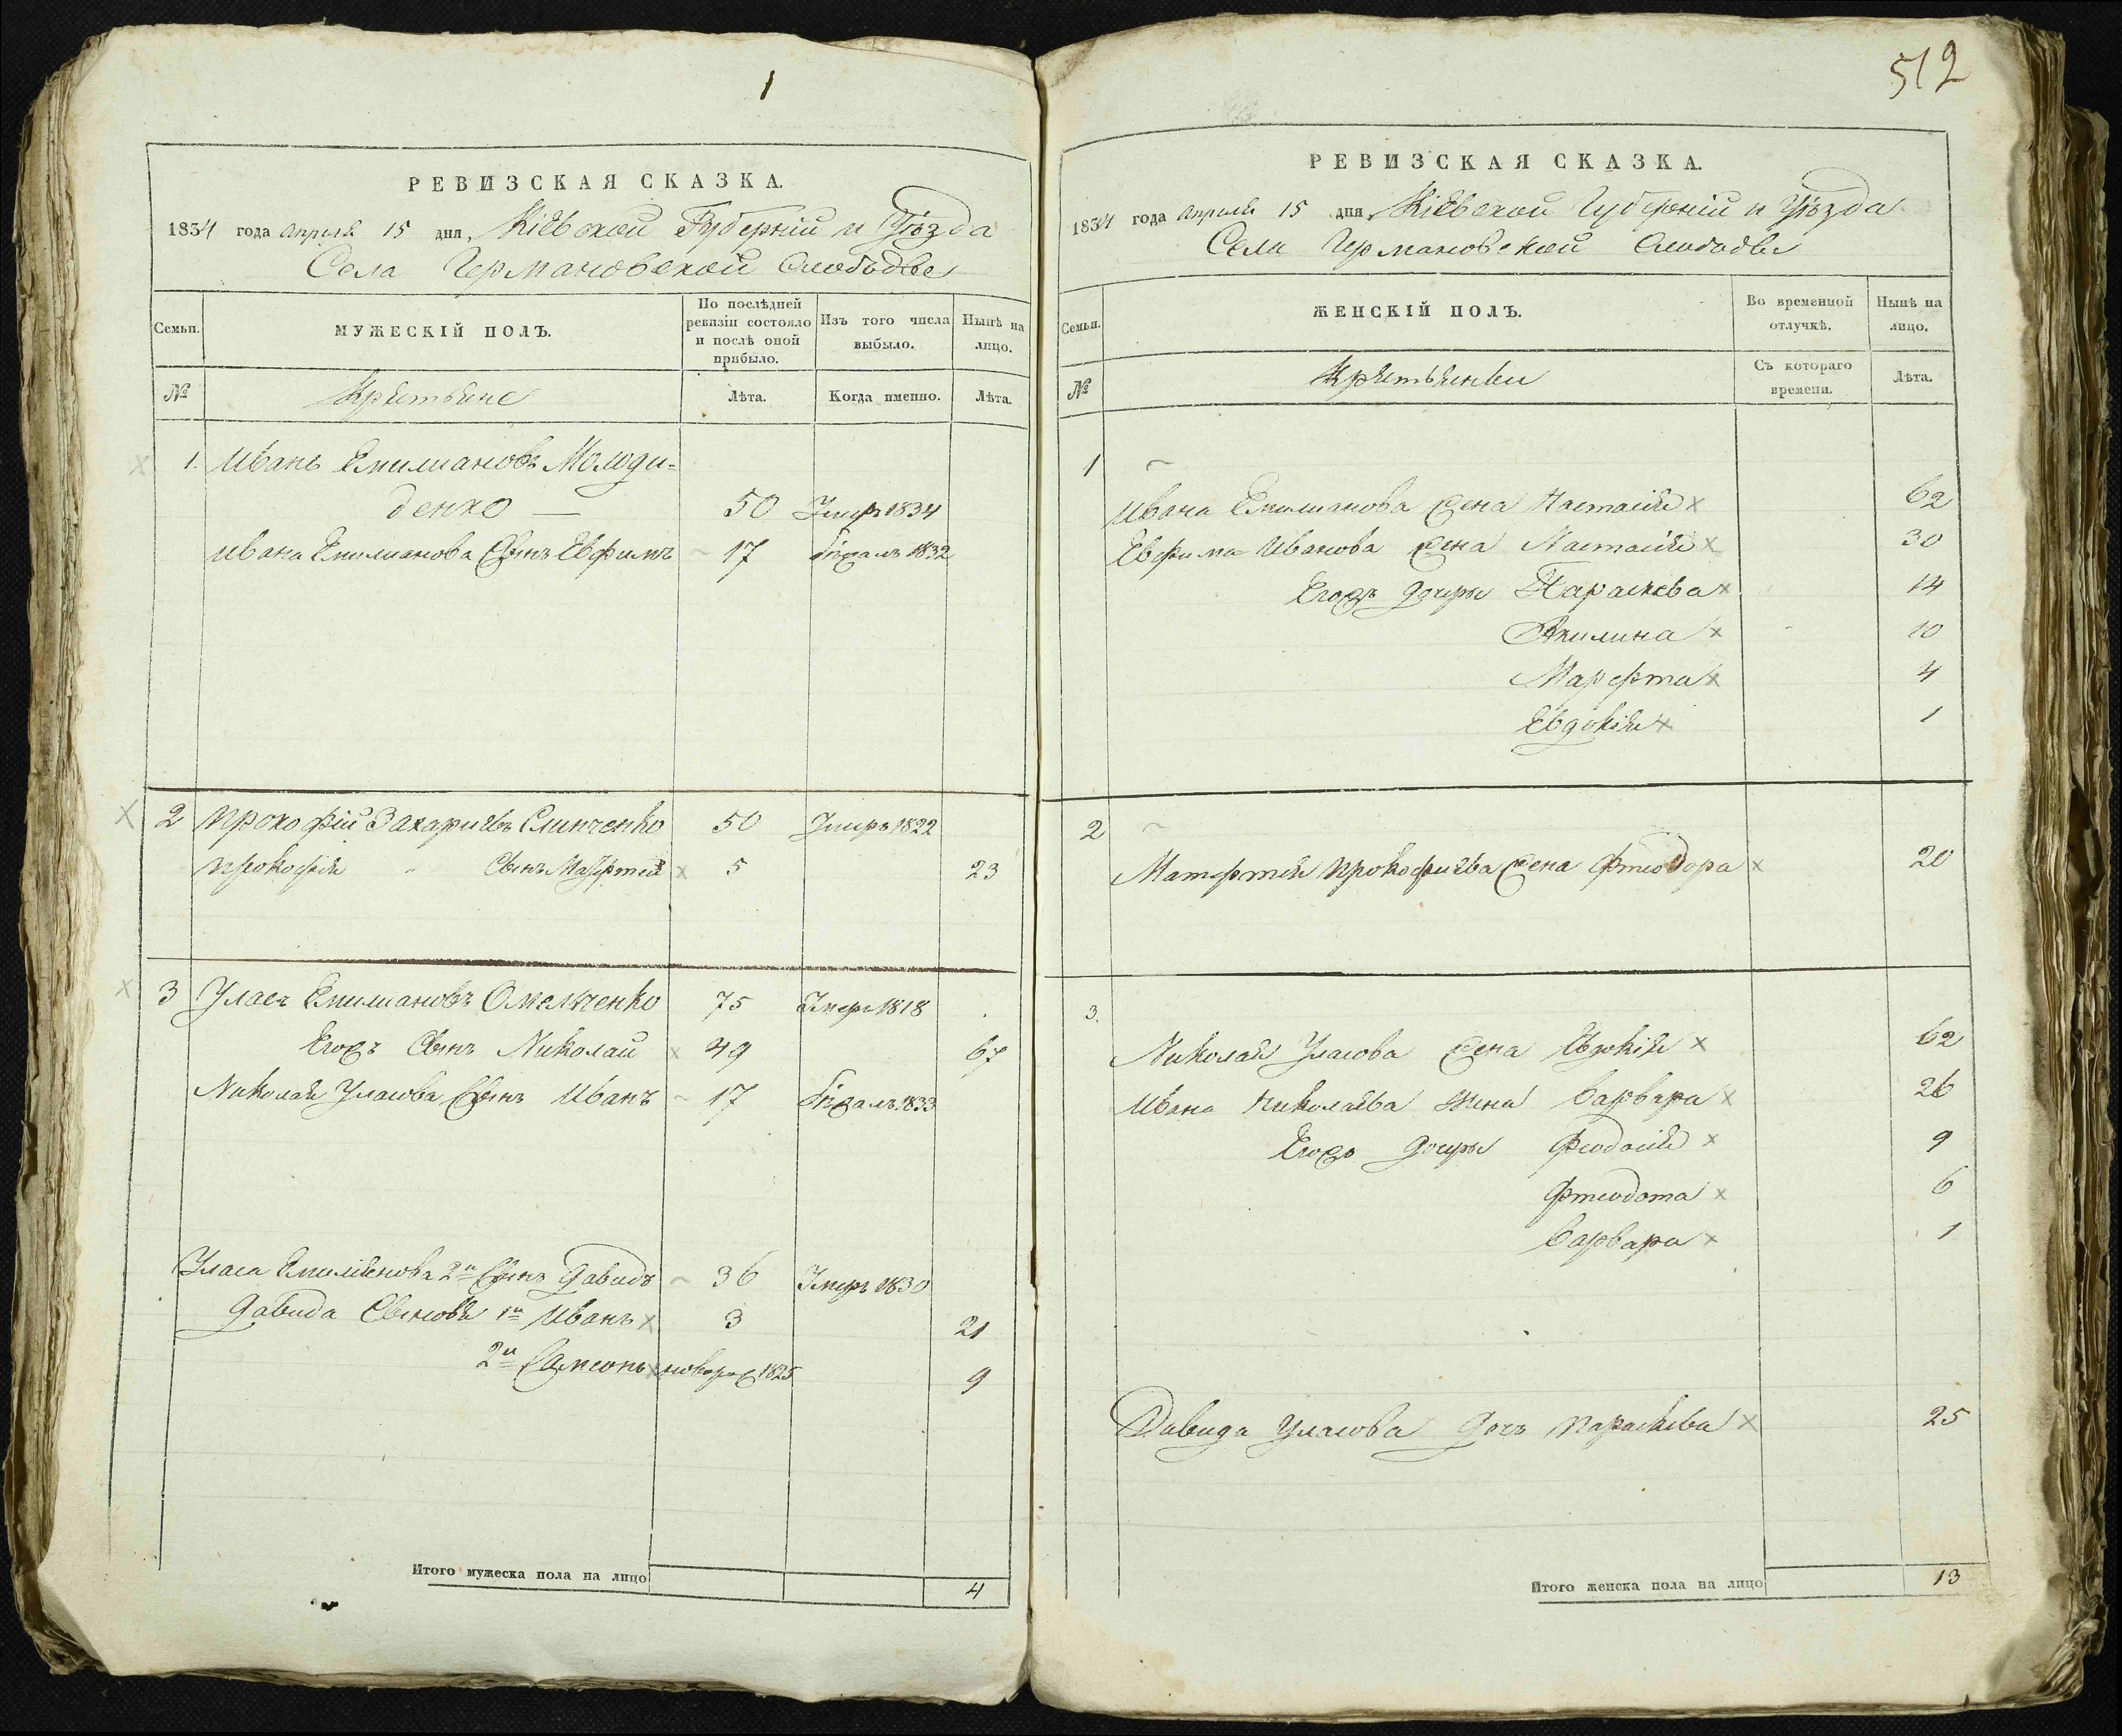 1
РЕВИЗСКАЯ СКАЗКА.
1834 года Апреля 15 дня, Кіевской Губерніи и Уѣзда
Села Германовской Слободы
Семьи.
МУЖЕСКІЙ ПОЛЪ.
По послѣдней ревизіи состояло и послѣ оной прибыло.
Изъ того числа выбыло.
Нынѣ на лицо.
№
Крестьяне
Лѣта.
Когда именно.
Лѣта.
1. Иванъ Емилиановъ Молоди-
денко — 50 Умеръ 1834
Ивана Емилианова Сынъ Евфимъ 17 1832
2 Прокофій Захариевъ Слинченко 50 Умеръ 1822
Прокофія " Сынъ х 5 23
3 Уласъ Емилиановъ Омельченко 75 Умеръ 1818
Егожъ Сынъ Николай х 49 67
Николая Уласова Сынъ Иванъ 17 1833
Уласа Емиліянова 2й Сынъ Давидъ 36 Умеръ 1830
Давида Сыновья 1й Иванъ х 3 21
2й Самсонъ х новорож 1825 9
Итого мужеска пола на лицо 4
512
РЕВИЗСКАЯ СКАЗКА.
1834 года Апреля 15 дня, Кіевской Губерніи и Уѣзда
Села Германовской Слободы
Семьи.
ЖЕНСКІЙ ПОЛЪ.
Во временной отлучкѣ.
Нынѣ на лицо.
№
Крестьянки
Съ котораго времени.
Лѣта.
1
Ивана Емилианова жена Настасія х 62
Евфима Иванова жена Настасія х 30
Егожъ дочеры Параскева х 14
Акилина х 10
Марфта х 4
Евдокія х 1
2
Матфтея Прокофиева жена Фтеодора х 20
3.
Николая Уласова жена х 62
Ивана Николаева жена Варвара х 26
Егожъ дочеры Феодосія х 9
Фтеодота х 6
Варвара х 1
Давида Уласова дочь Параскева х 25
Итого женска пола на лицо 13